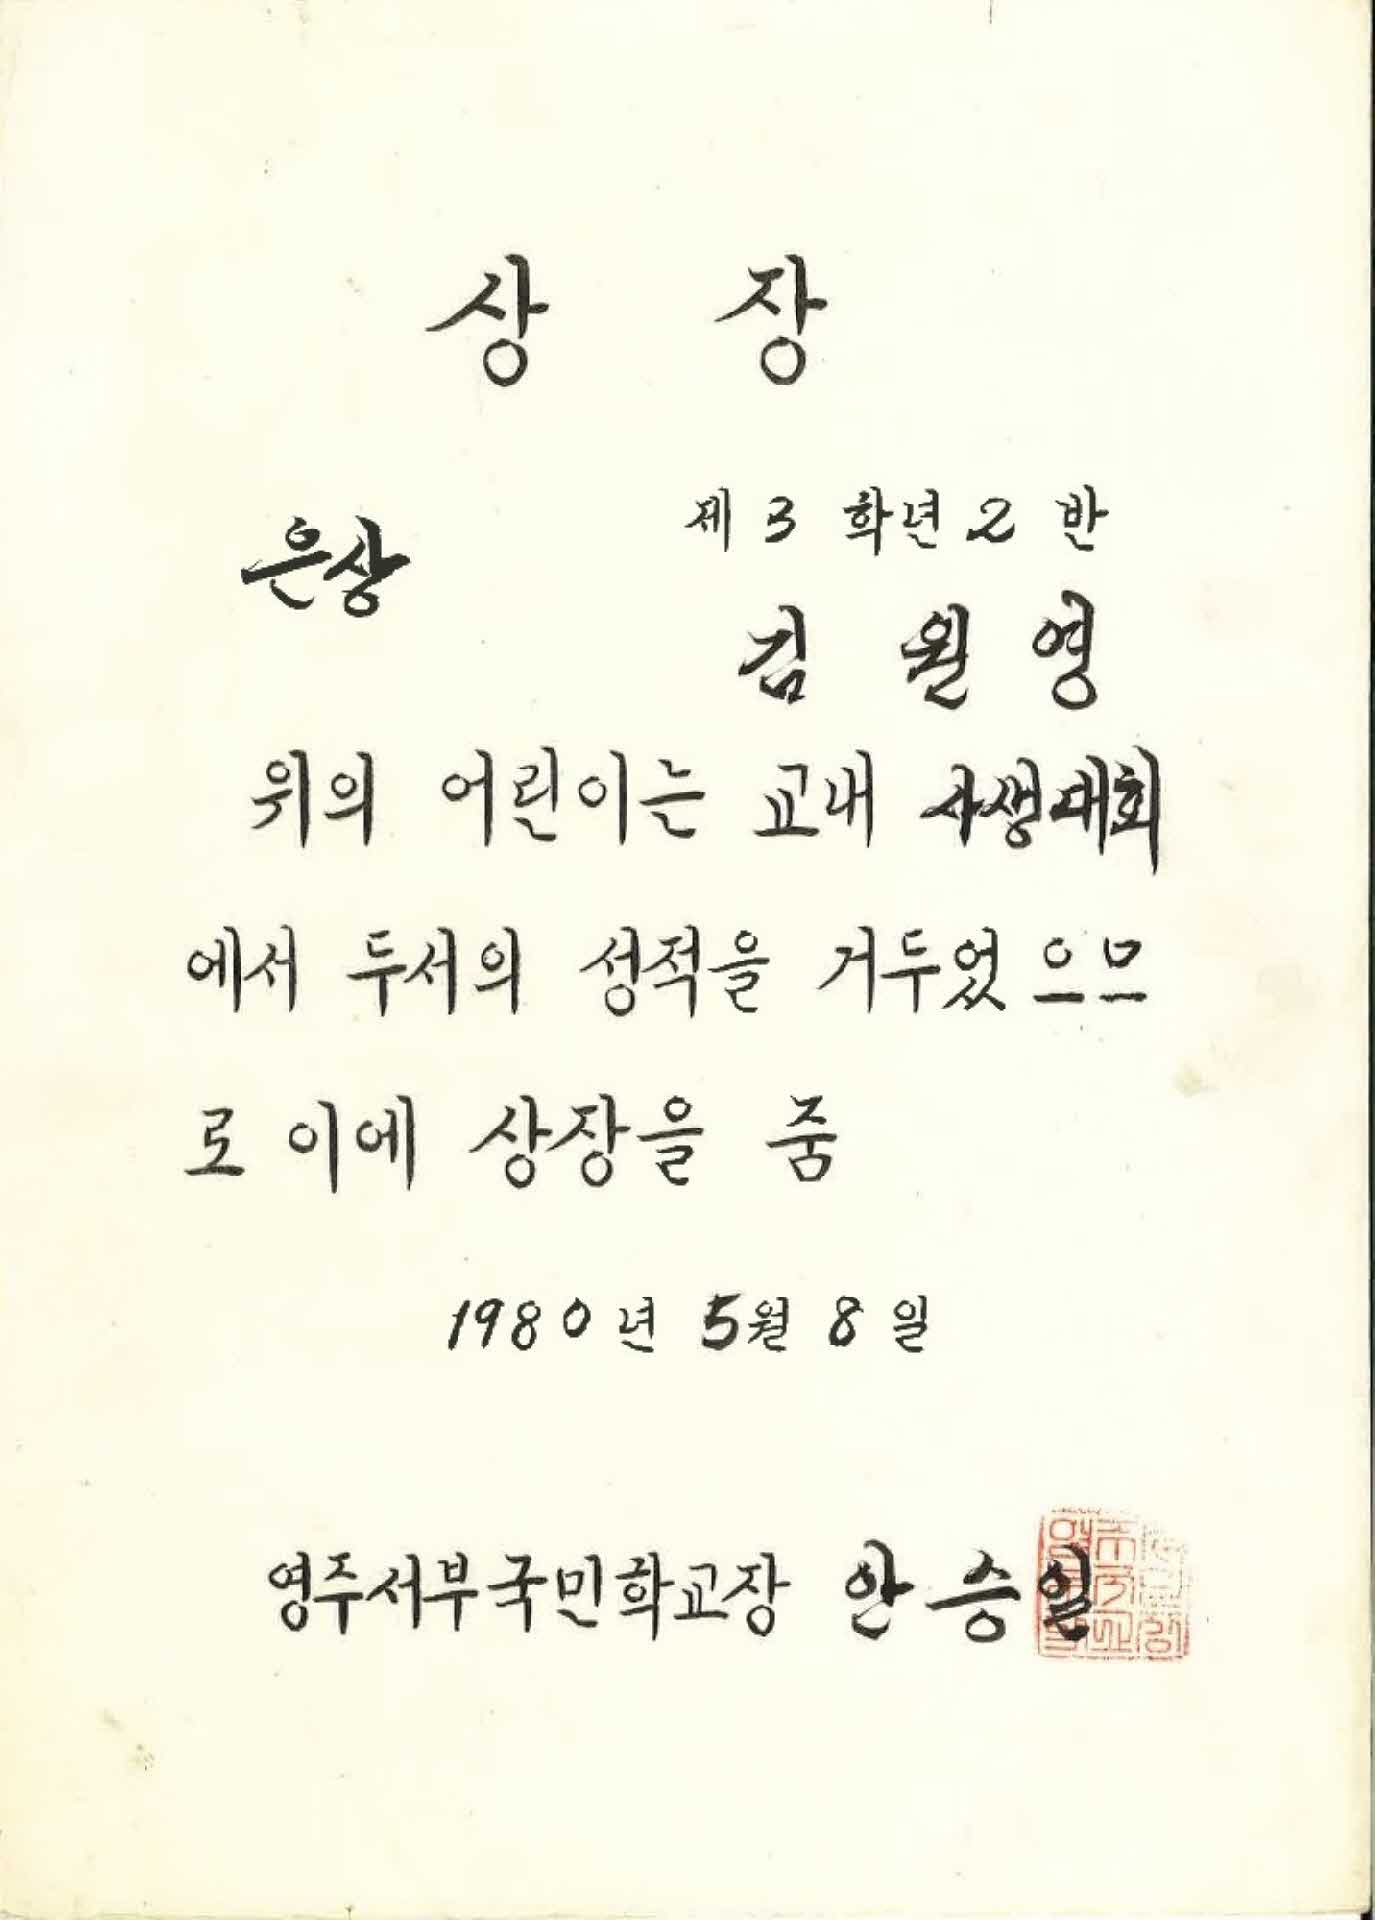 상 장
은상
제 3 학년 2 반
김 원 영
위의 어린이는 교내 사생대회
에서 두서의 성적을 거두었으므
로 이에 상장을 줌
1980년 5월 8일
영주서부국민학교장 안승일